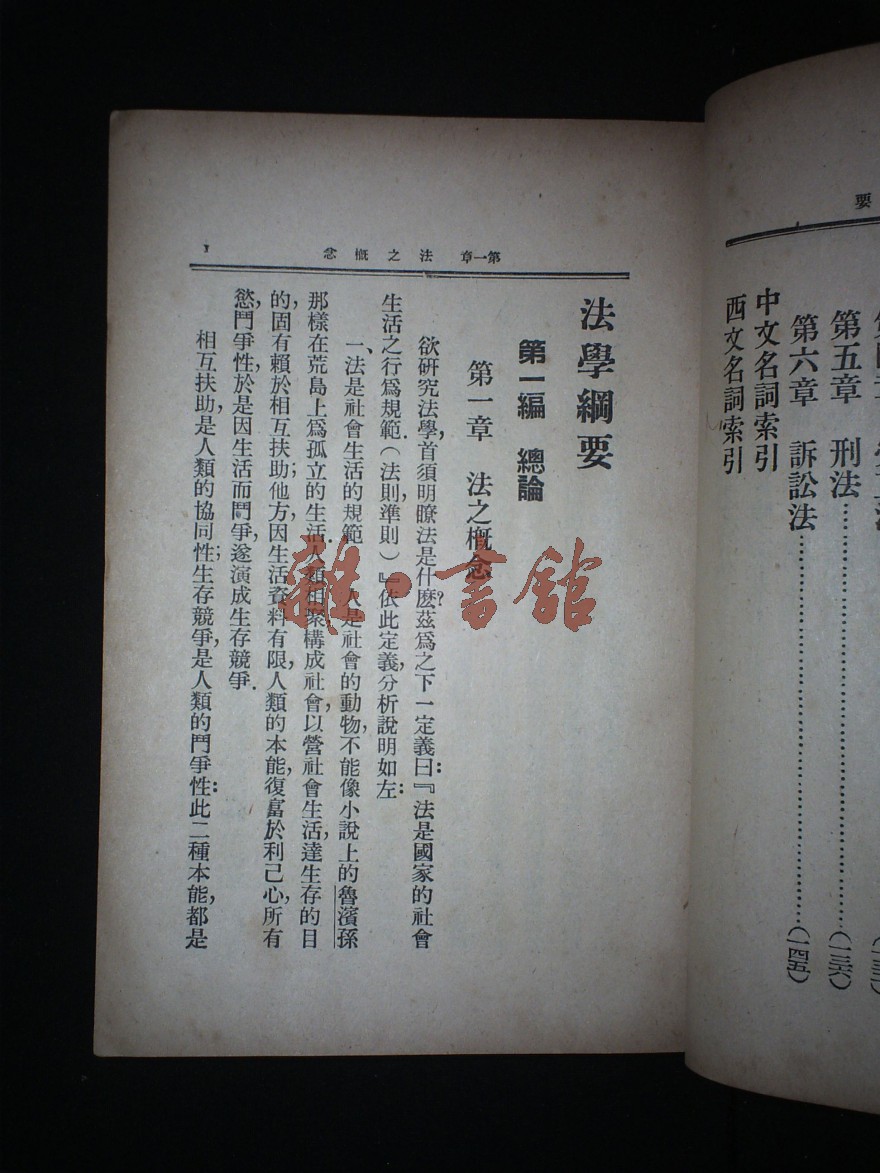 要
第五章 刑法……(一三六)
第六章 訴訟法……(一四五)
中文名詞索引
西文名詞索引
第一章 法之概念 1
法學綱要
第一編 總論
第一章 法之概念
欲研究法學,首須明瞭法是什麼?茲爲之下一定義曰:『法是國家的社會
生活之行爲規範.(法則,準則)』依此定義,分析說明如左:
一、法是社會生活的規範 人是社會的動物,不能像小說上的魯濱孫
那樣在荒島上爲孤立的生活.人類相聚構成社會,以營社會生活,達生存的目
的,固有賴於相互扶助;他方,因生活資料有限,人類的本能,復富於利己心,所有
慾,鬥爭性,於是因生活而鬥爭,遂演成生存競爭.
相互扶助,是人類的協同性;生存競爭,是人類的鬥爭性:此二種本能,都是
雜·書館